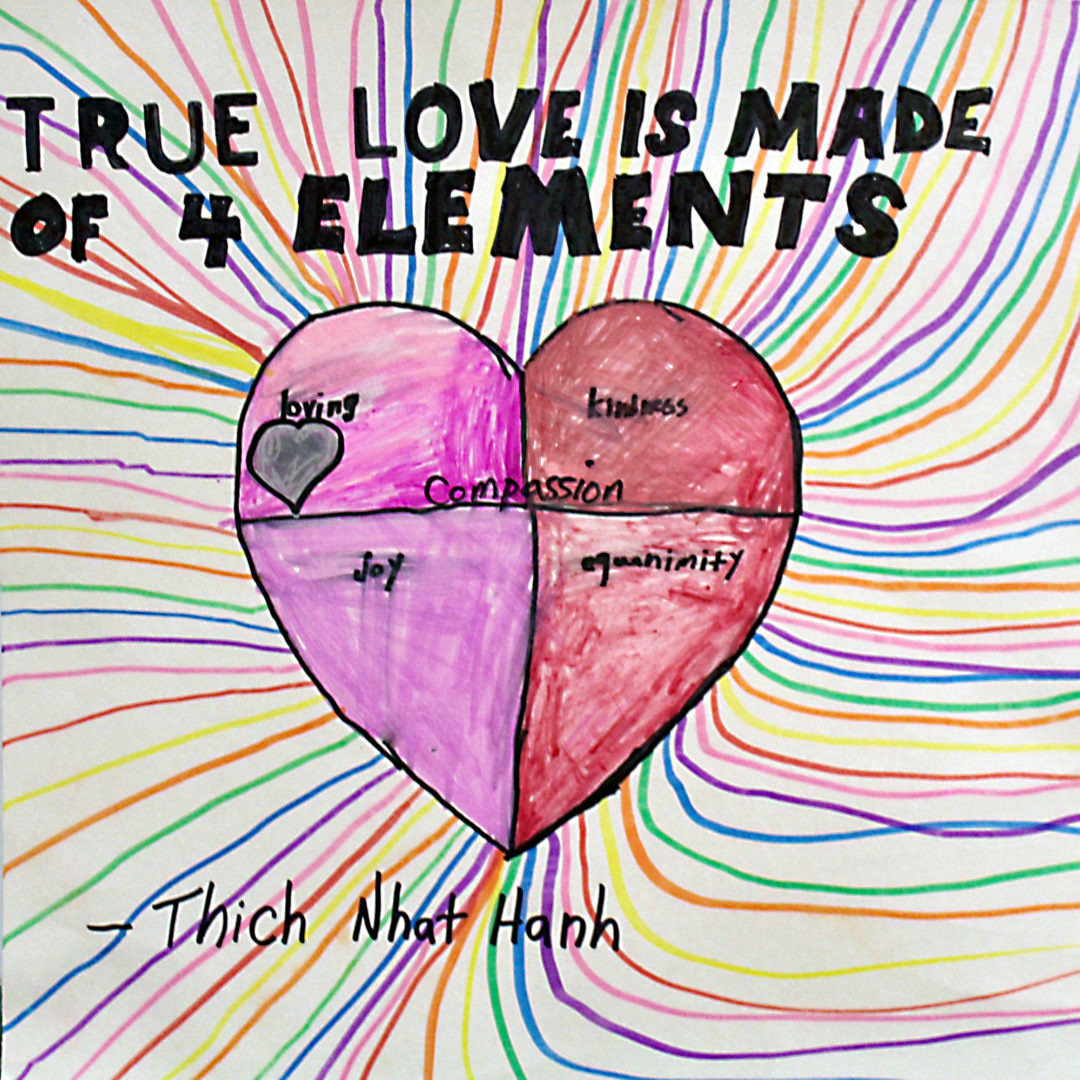 TRUE LOVE IS MADE
OF 4 ELEMENTS
loving kindness
Compassion
joy equanimity
- Thich Nhat Hanh